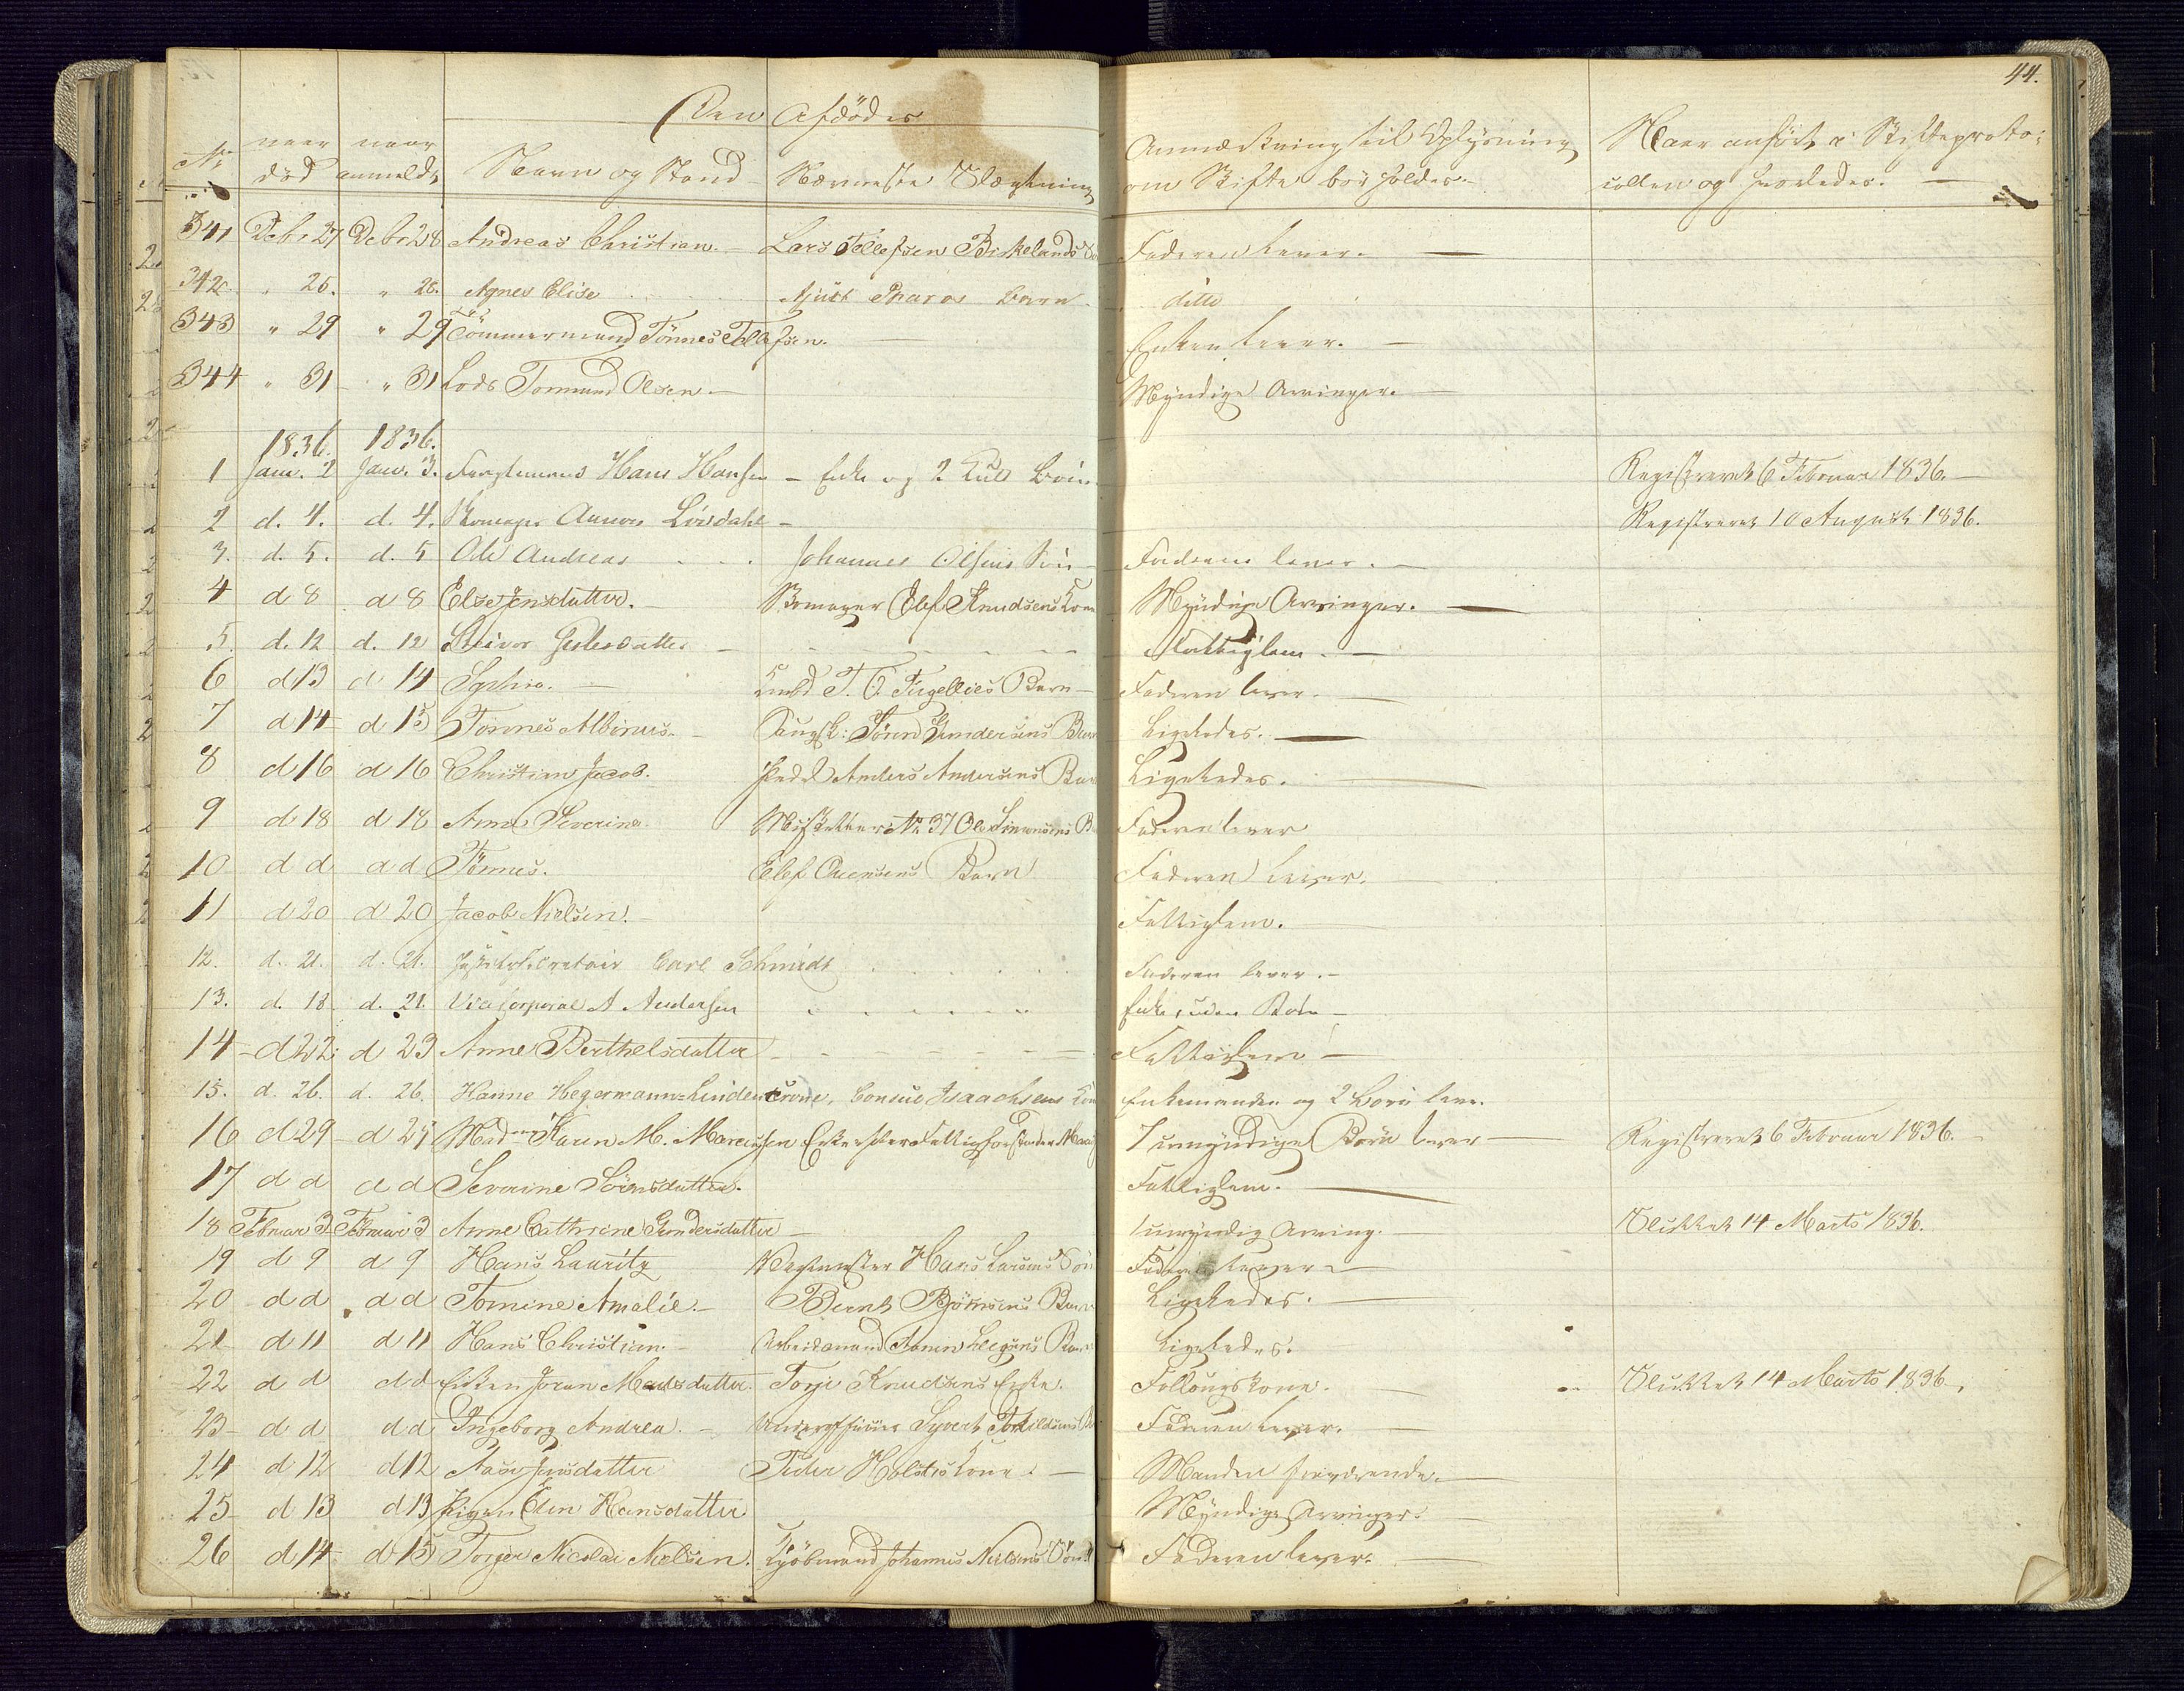 44.
Den Afdödes
No naar död naar anmeldt Navn og Stand Nærmeste Slægtning Anmærkning til Oplysning om Skifte bör holdes. Naar anfört i Skifteproto-
collen og hvorledes.
341 Debr 27 Debr 28 Andreas Christian. Lars Tellefsen Birkelands Faderen lever.
342 " 25. " 28. Agnes Elise Barn. ditto
343 " 29 " 29 Tömmermand Tönnes Tellefsen. Enken lever.
344 " 31 " 31 Lods Tormund Olsen Myndige Arvinger.
1836. 1836.
1 Janr. 2 Janr. 3. Hans Hansen Enke og 2 Kuld Börn Registreret 6 Februar 1836.
2 d. 4. d. 4. Skomager Lövdahl Registreret 10 August 1836.
3. d. 5. d. 5 Ole Andreas Johannes Olsens Sön Faderen lever.
4 d 8 d 8 Else Jensdatter. Skomager Elef Knudsens Kone Myndige Arvinger.
5. d. 12 d. 12 Fattiglem.
6 d 13 d 14 Sophie. Barn Faderen lever.
7 d 14 d 15 Tönnes Albinus. Gundersens Barn Ligeledes.
8 d 16 d 16 Christian Jacob. Anders Andersens Barn Ligeledes.
9 d 18 d 18 Anne Severine No 37 Ole Simonsens Faderen lever
10 d d d d Tönnes. Elef Barn Faderen lever.
11 d 20 d 20 Jacob Nielsen. Fattiglem.
12. d. 21. d. 21. Carl Schmidt Faderen lever.
13. d. 18 d. 21. Vicecorporal A Andersen Enke, uden Börn
14 d 22 d 23 Anne Berthelsdatter Fattiglem
15. d. 26. d. 26. Hanne Hegermann-Lindencrone, Consul Isaachsens Kone Enkemanden og 2 Börn lever.
16 d 29 d 29 Madme Karen M. Marcussen Enke efter Fattigforstander 7 umyndige Börn lever Registreret 6 Februar 1836.
17 d d d d Severine Sörensdatter. Fattiglem.
18 Februar 3 Februar 3 Anne Cathrine Gundersdatter 1 umyndig Arving. Sluttet 14 Marts 1836.
19 d 9 d 9 Hans Lauritz Hans Larsens Sön Faderen lever
20 d d d d Tomine Amalie. Bernt Björnsens Barn Ligeledes.
21 d 11 d 11 Hans Christian. Arbeidsmand Barn Ligeledes.
22 d d d d Enken Joran Madsdatter. Torje Knudsens Enke. Sluttet 14 Marts 1836.
23 d d d d Ingeborg Andrea. Underofficier Syvert Torkildsens Faderen lever.
24 d 12 d 12 Aase Jensdatter Peder Holsts Kone. Manden
25 d 13 d 13 Pigen Elen Hansdatter Myndige Arvinger.
26 d 14 d 15 Torger Nicolai Nielsen. Kjöbmand Johannes Nielsens Sön Faderen lever.